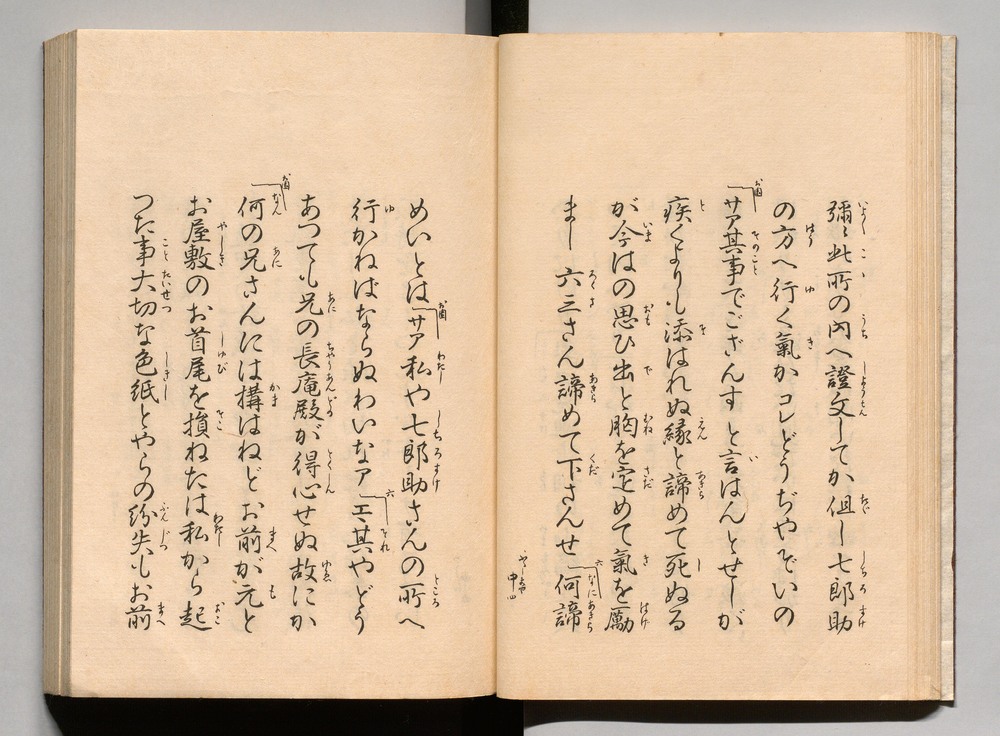 彌〻此所の内へ證文してか但し七郎助
の方へ行く氣かコレどうぢやぞいの
お園「サア其事でござんすと言はんとせしが
疾くよりも添はれぬ縁と諦めて死ぬる
が今はの思ひ出と胸を定めて氣を勵
まし六三さん諦めて下さんせ六「何諦
めいとはお園「サア私や七郎助さんの所へ
行かねばならぬわいなア六「エ其やどう
あつても兄の長庵殿が得心せぬ故にか
お園「何の兄さんには構はねどお前が元と
お屋敷のお首尾を損ねたは私から起
つた事大切な色紙とやらの紛失もお前